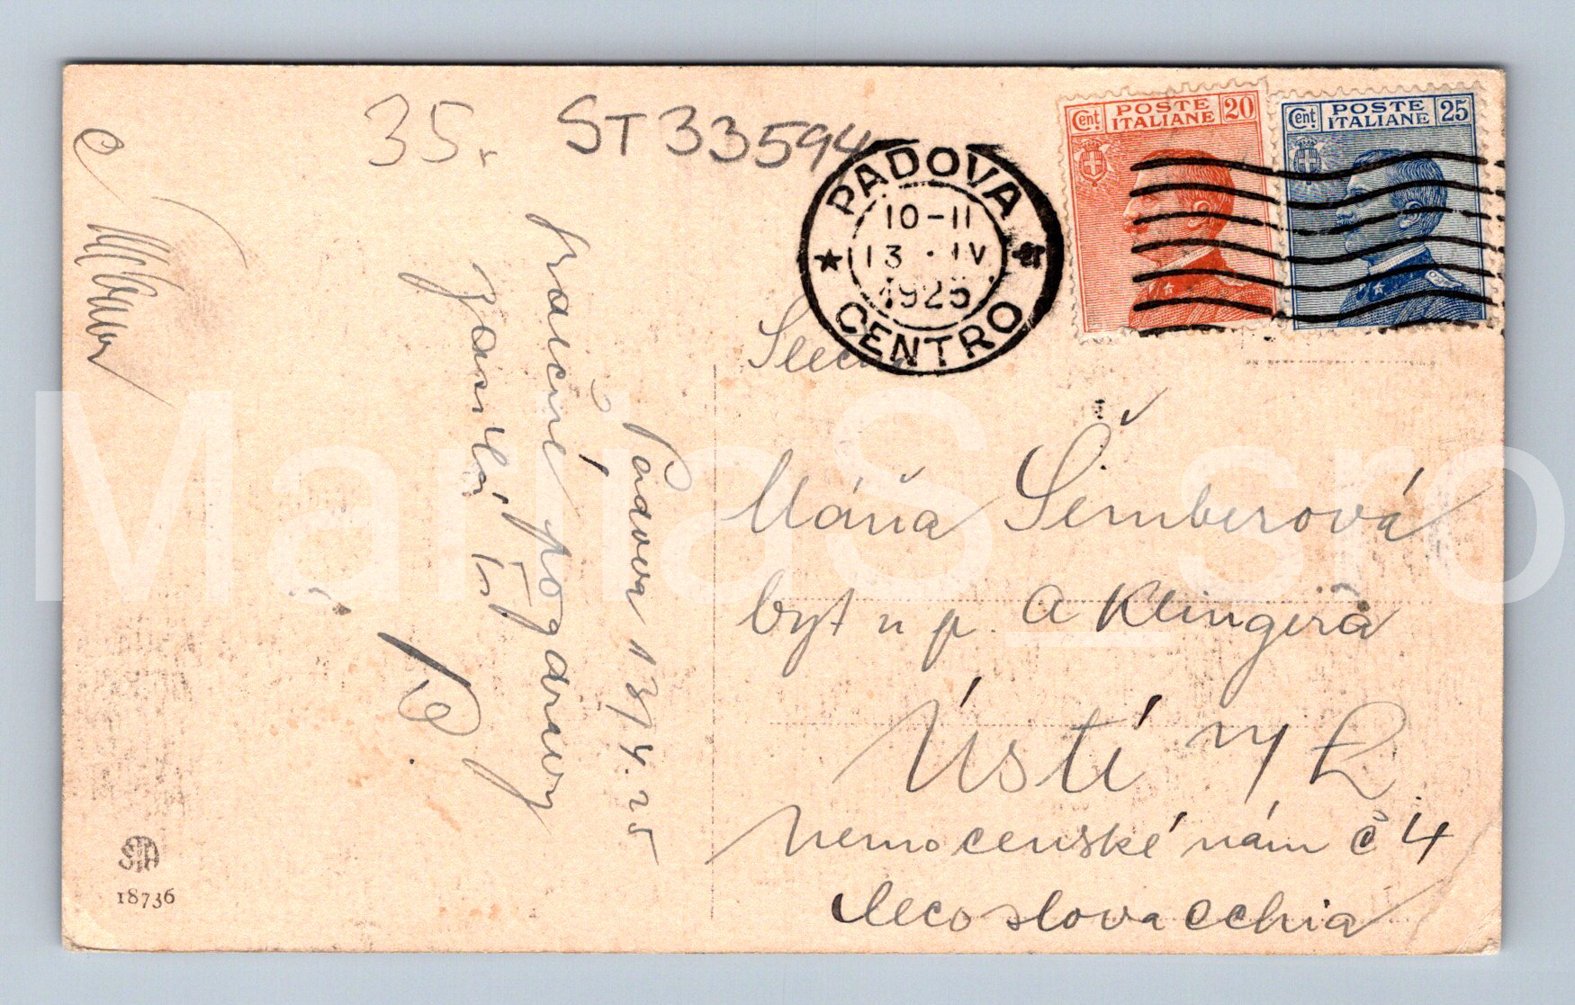 35.
ST 33594
PADOVA
10-11
13 · IV
1925
CENTRO
Cent. POSTE ITALIANE 20
Cent. POSTE ITALIANE 25
Padova 13/4. 25
pozdravy
zasílá
Slečna
Máňa Šemberová
byt u p. A Klingera
Ústí n/L
nemocenské nám č 4
Cecoslovacchia
STA
18736
MartiaS_sro